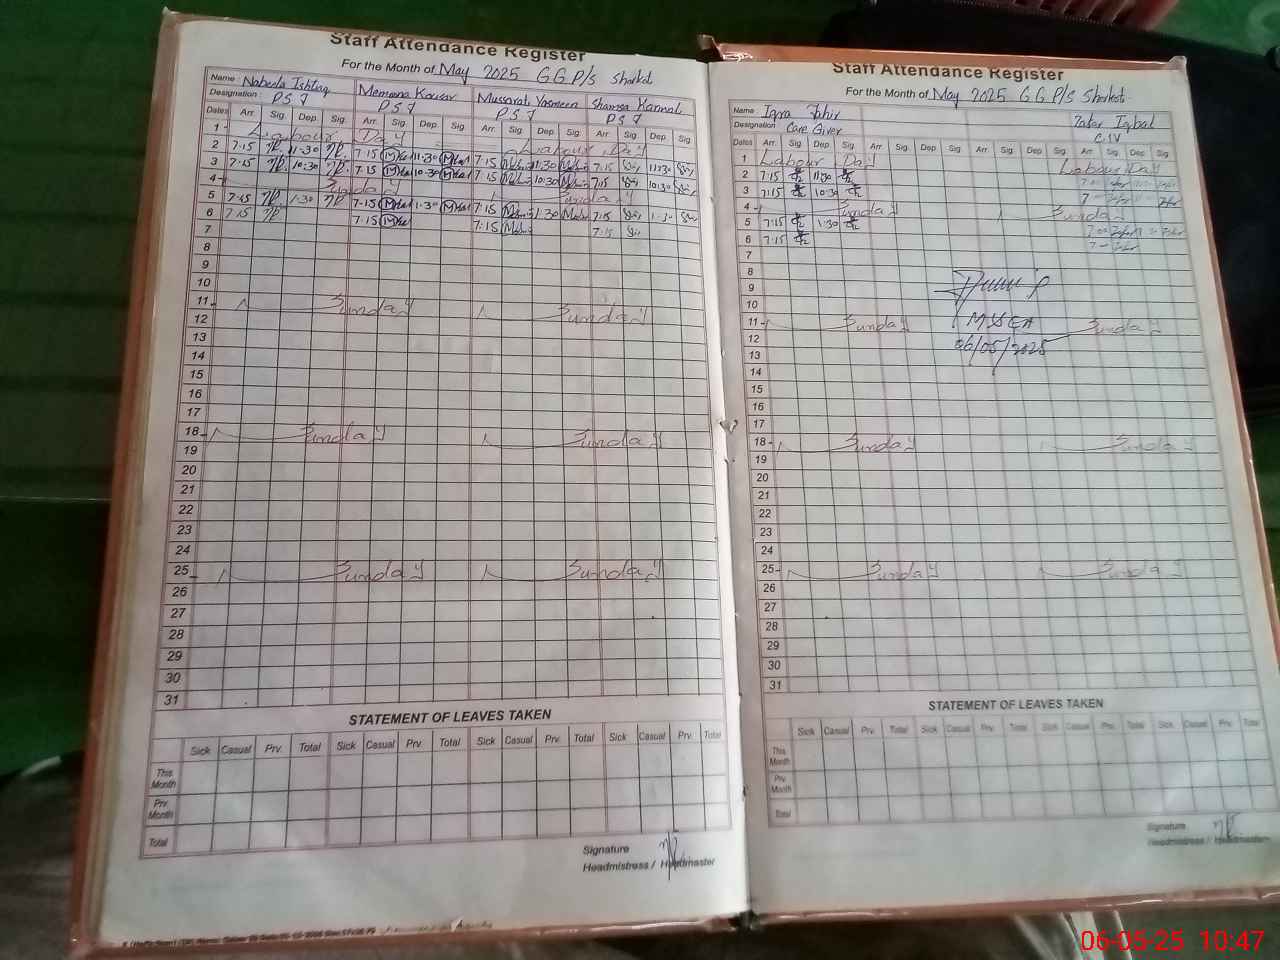 Staff Attendance Register
For the Month of May 2025 GGP/S Shorkot
Name : Nabeela Ishtiaq Memona Kousar Mussarat Yasmeen Shamsa Kanwal
Designation : PST PST PST PST
Dates Arr. Sig. Dep. Sig. Arr. Sig. Dep. Sig. Arr. Sig. Dep. Sig. Arr. Sig. Dep. Sig.
1 Labour Day Labour Day
2 7.15 11.30 7.15 11.30 7.15 11.30 7.15 11.30
3 7.15 10.30 7.15 10.30 7.15 10.30 7.15 10.30
4 Sunday Sunday
5 7.15 1.30 7.15 1.30 7.15 1.30 7.15
6 7.15 7.15 7.15 7.15
7
8
9
10
11 Sunday Sunday
12
13
14
15
16
17
18 Sunday Sunday
19
20
21
22
23
24
25 Sunday Sunday
26
27
28
29
30
31
STATEMENT OF LEAVES TAKEN
Sick Casual Prv. Total Sick Casual Prv. Total Sick Casual Prv. Total Sick Casual Prv. Total
This Month
Prv. Month
Total
Signature
Headmistress / Headmaster
Staff Attendance Register
For the Month of May 2025 GGP/S Shorkot
Name Iqra Tahir Zafar Iqbal
Designation Care Giver C.IV
Dates Arr. Sig. Dep Sig. Arr. Sig. Dep Sig. Arr. Sig. Dep Sig. Arr. Sig. Dep Sig.
1 Labour Day Labour Day
2 7.15 11.30
3 7.15 10.30
4 Sunday Sunday
5 7.15 1.30
6 7.15
7
8
9
10
11 Sunday Sunday
12
13
14
15
16
17
18 Sunday Sunday
19
20
21
22
23
24
25 Sunday Sunday
26
27
28
29
30
31
06/05/2025
STATEMENT OF LEAVES TAKEN
Sick Casual Prv. Total Sick Casual Prv. Total Sick Casual Prv. Total Sick Casual Prv. Total
This Month
Prv. Month
Total
Signature
Headmistress / Headmaster
06-05-25 10:47